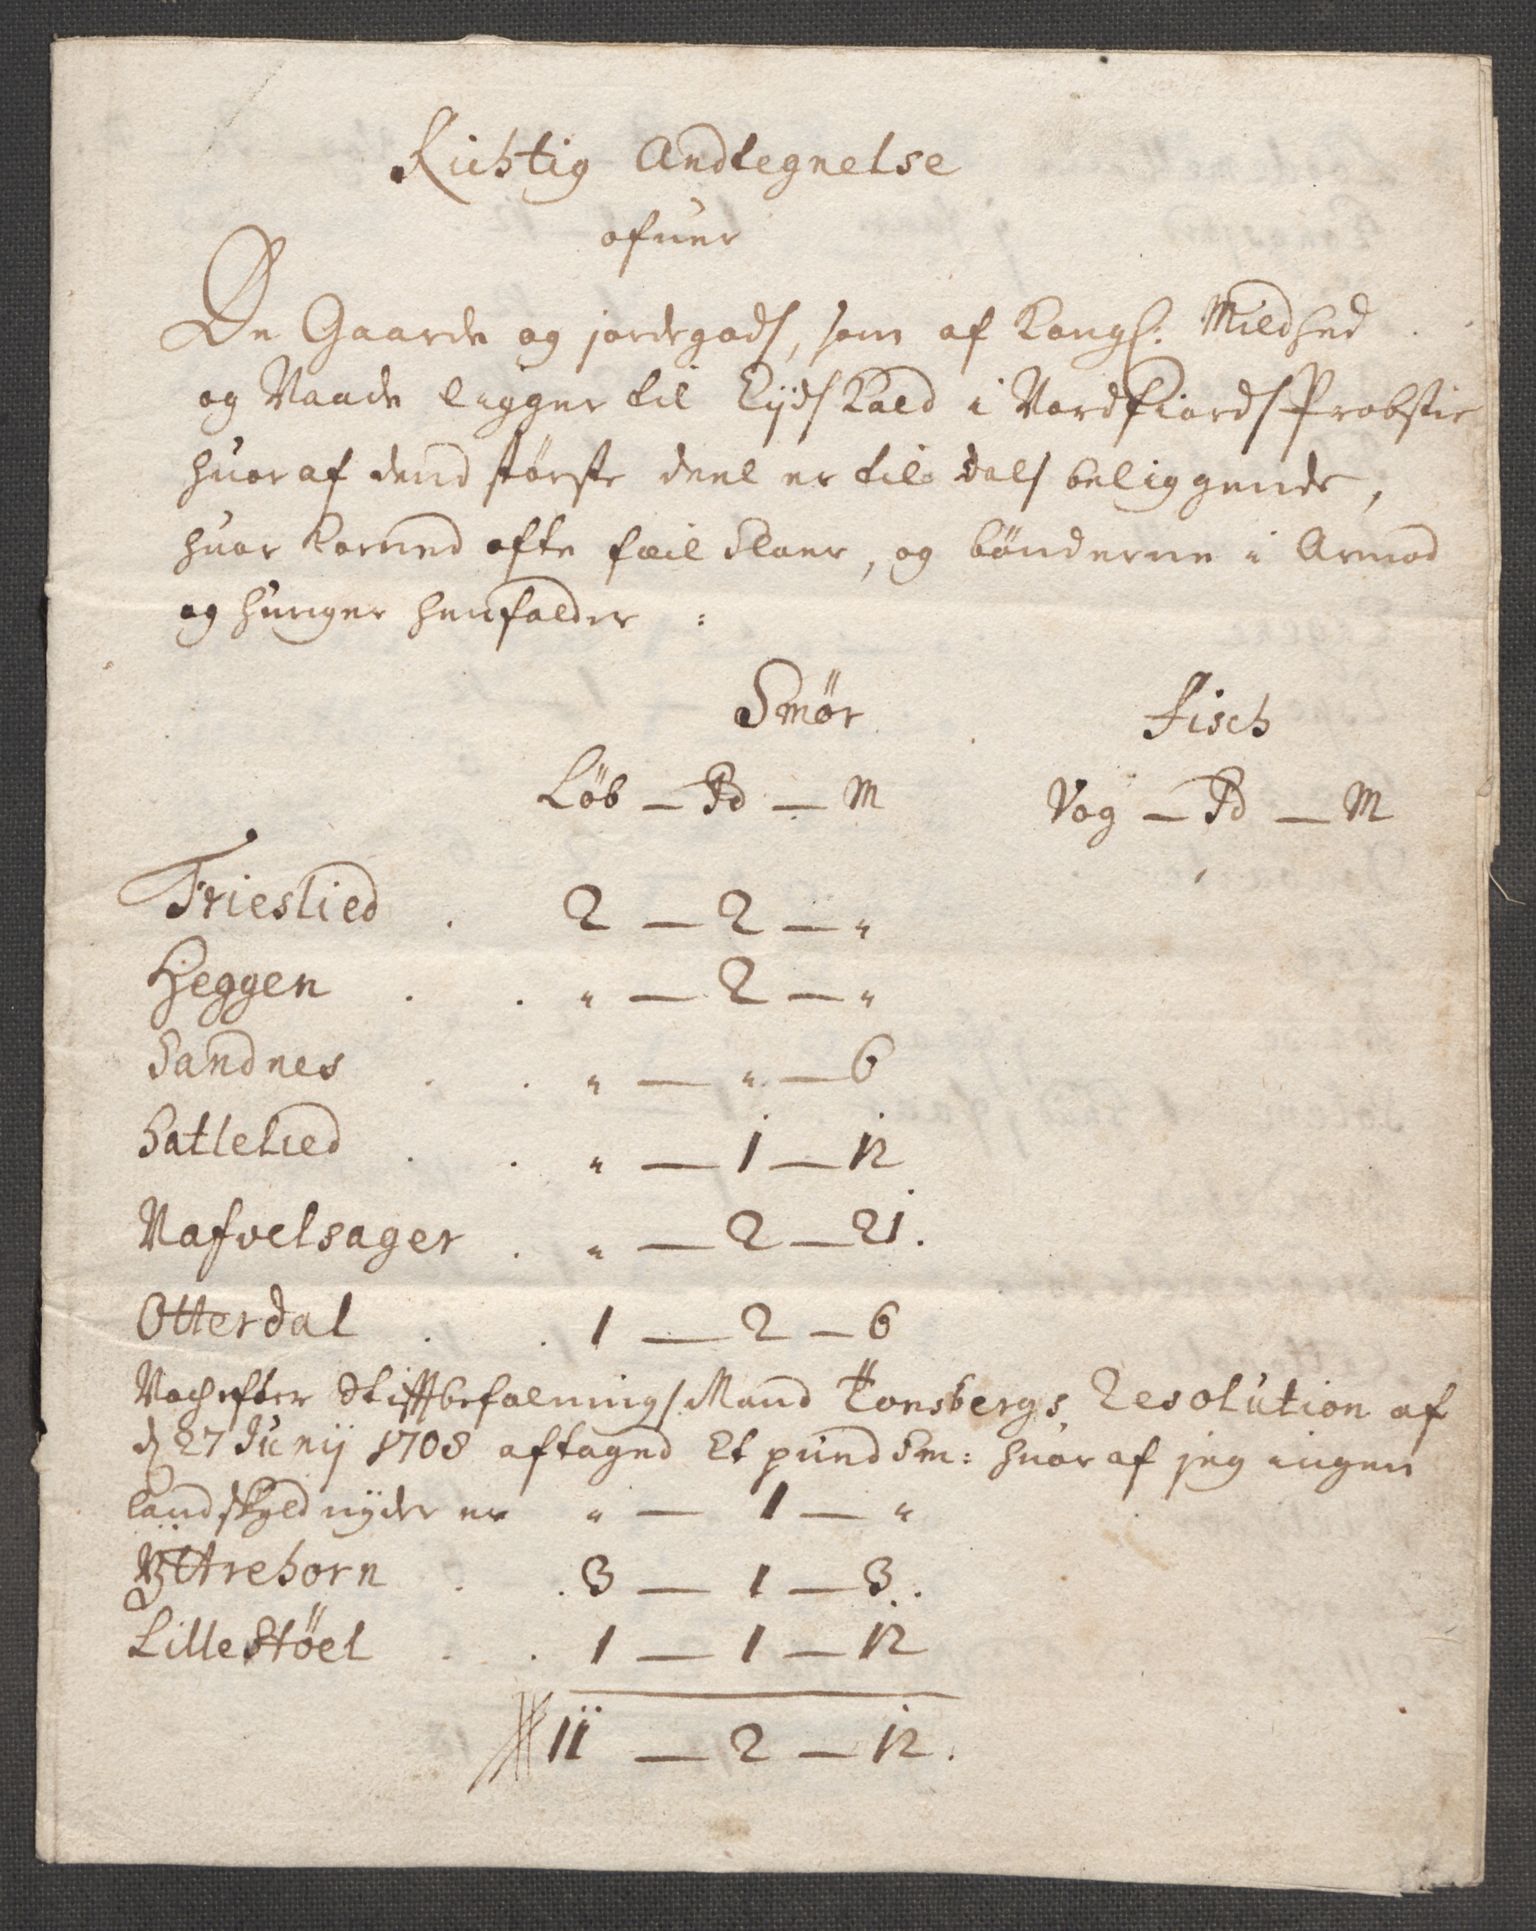 Richtig Andtegnelse
ofuer
De Gaarde og jordegods, som af Kongl: Mildhed
og Naade ligger til Eijds Kald i Nordfiords Probstie
huoraf dend største deel er til dals beliggende,
huor Korned ofte feil slaer, og bønderne i Armod
og hunger henfalder :
Smør Fisch
Løb — Pd — M Vog — Pd — M
Frieslied . 2 — 2 — "
Heggen . . " — 2 — "
Sandnes . . " — " — 6
Hatlelied . . " — 1 — 12
Nafvelsager . " — 2 — 21.
Otterdal . . 1 — 2 — 6
Noch efter Stiftbefalnings Mand Tonsbergs Resolution af
d 27 Junij 1708 aftaged Et pund Sm: huoraf jeg ingen
landskyld nyder er " — 1 — "
Yttrehorn . . 3 — 1 — 3.
Lillestöel . . 1 — 1 — 12
11 — 2 — 12.